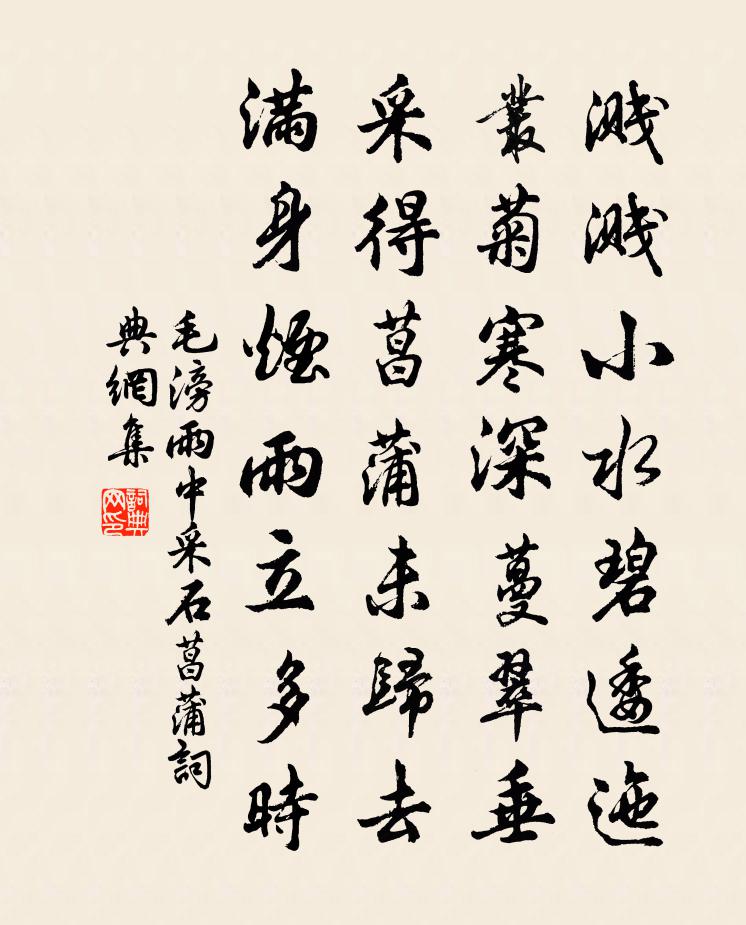 溅溅小水碧逶迤
叢菊寒深蔓翠垂
采得菖蒲未歸去
滿身煙雨立多時
毛滂雨中采石菖蒲詞
典網集
詞典网印